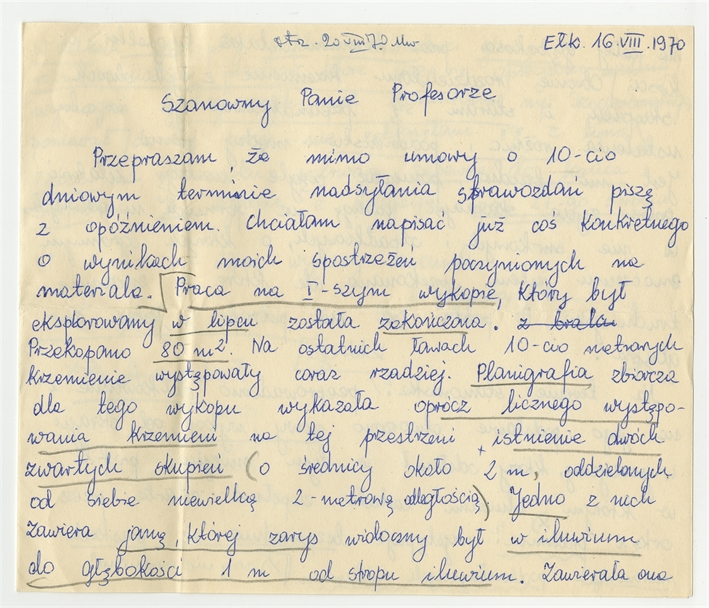 20 VIII 70
Ełk. 16.VIII.1970
Szanowny Panie Profesorze
Przepraszam, że mimo umowy o 10-cio
dniowym terminie nadsyłania sprawozdań piszę
z opóźnieniem. Chciałam napisać już coś konkretnego
o wynikach moich spostrzeżeń poczynionych na
materiale. Praca na I-szym wykopie, który był
eksplorowany w lipcu została zakończona. z braku
Przekopano 80 m². Na ostatnich ławach 10-cio metrowych
krzemienie występowały coraz rzadziej. Planigrafia zbiorcza
dla tego wykopu wykazała oprócz licznego występo-
wania krzemieni na tej przestrzeni, istnienie dwóch
zwartych skupień (o średnicy około 2 m, oddzielonych
od siebie niewielką 2-metrową odległością) Jedno z nich
zawiera jamę, której zarys widoczny był w iluwium
do głębokości 1 m od stropu iluwium. Zawierała ona